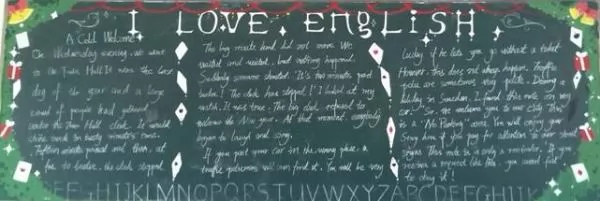 I LOVE ENGLISH
A Cold Welcome
On Wednesday evening, we went
to the Town Hall. It was the last
day of the year and a large
crowd of people had gathered
under the Town Hall clock. It would
strike twelve in twenty minutes' time.
Fifteen minutes passed and then, at
five to twelve, the clock stopped
The big minute hand did not move. We
waited and waited, but nothing happened.
Suddenly someone shouted. "It's two minutes past
twelve! The clock has stopped!" I looked at my
watch. It was true. The big clock refused to
welcome the New Year. At that moment, everybody
began to laugh and sing.
If you park your car in the wrong place, a
traffic policeman will soon find it. You will be very
lucky if he lets you go without a ticket.
However, this does not always happen. Traffic
police are sometimes very polite. During a
holiday in Sweden, I found this note on my
car: "Sir, we welcome you to our city. This
is a 'No Parking' area. You will enjoy your
stay here if you pay attention to our street
signs. This note is only a reminder." If you
receive a request like this, you cannot fail
to obey it!
EFGHIJKLMNOPQRSTUVWXYZABCDEFGHIJK